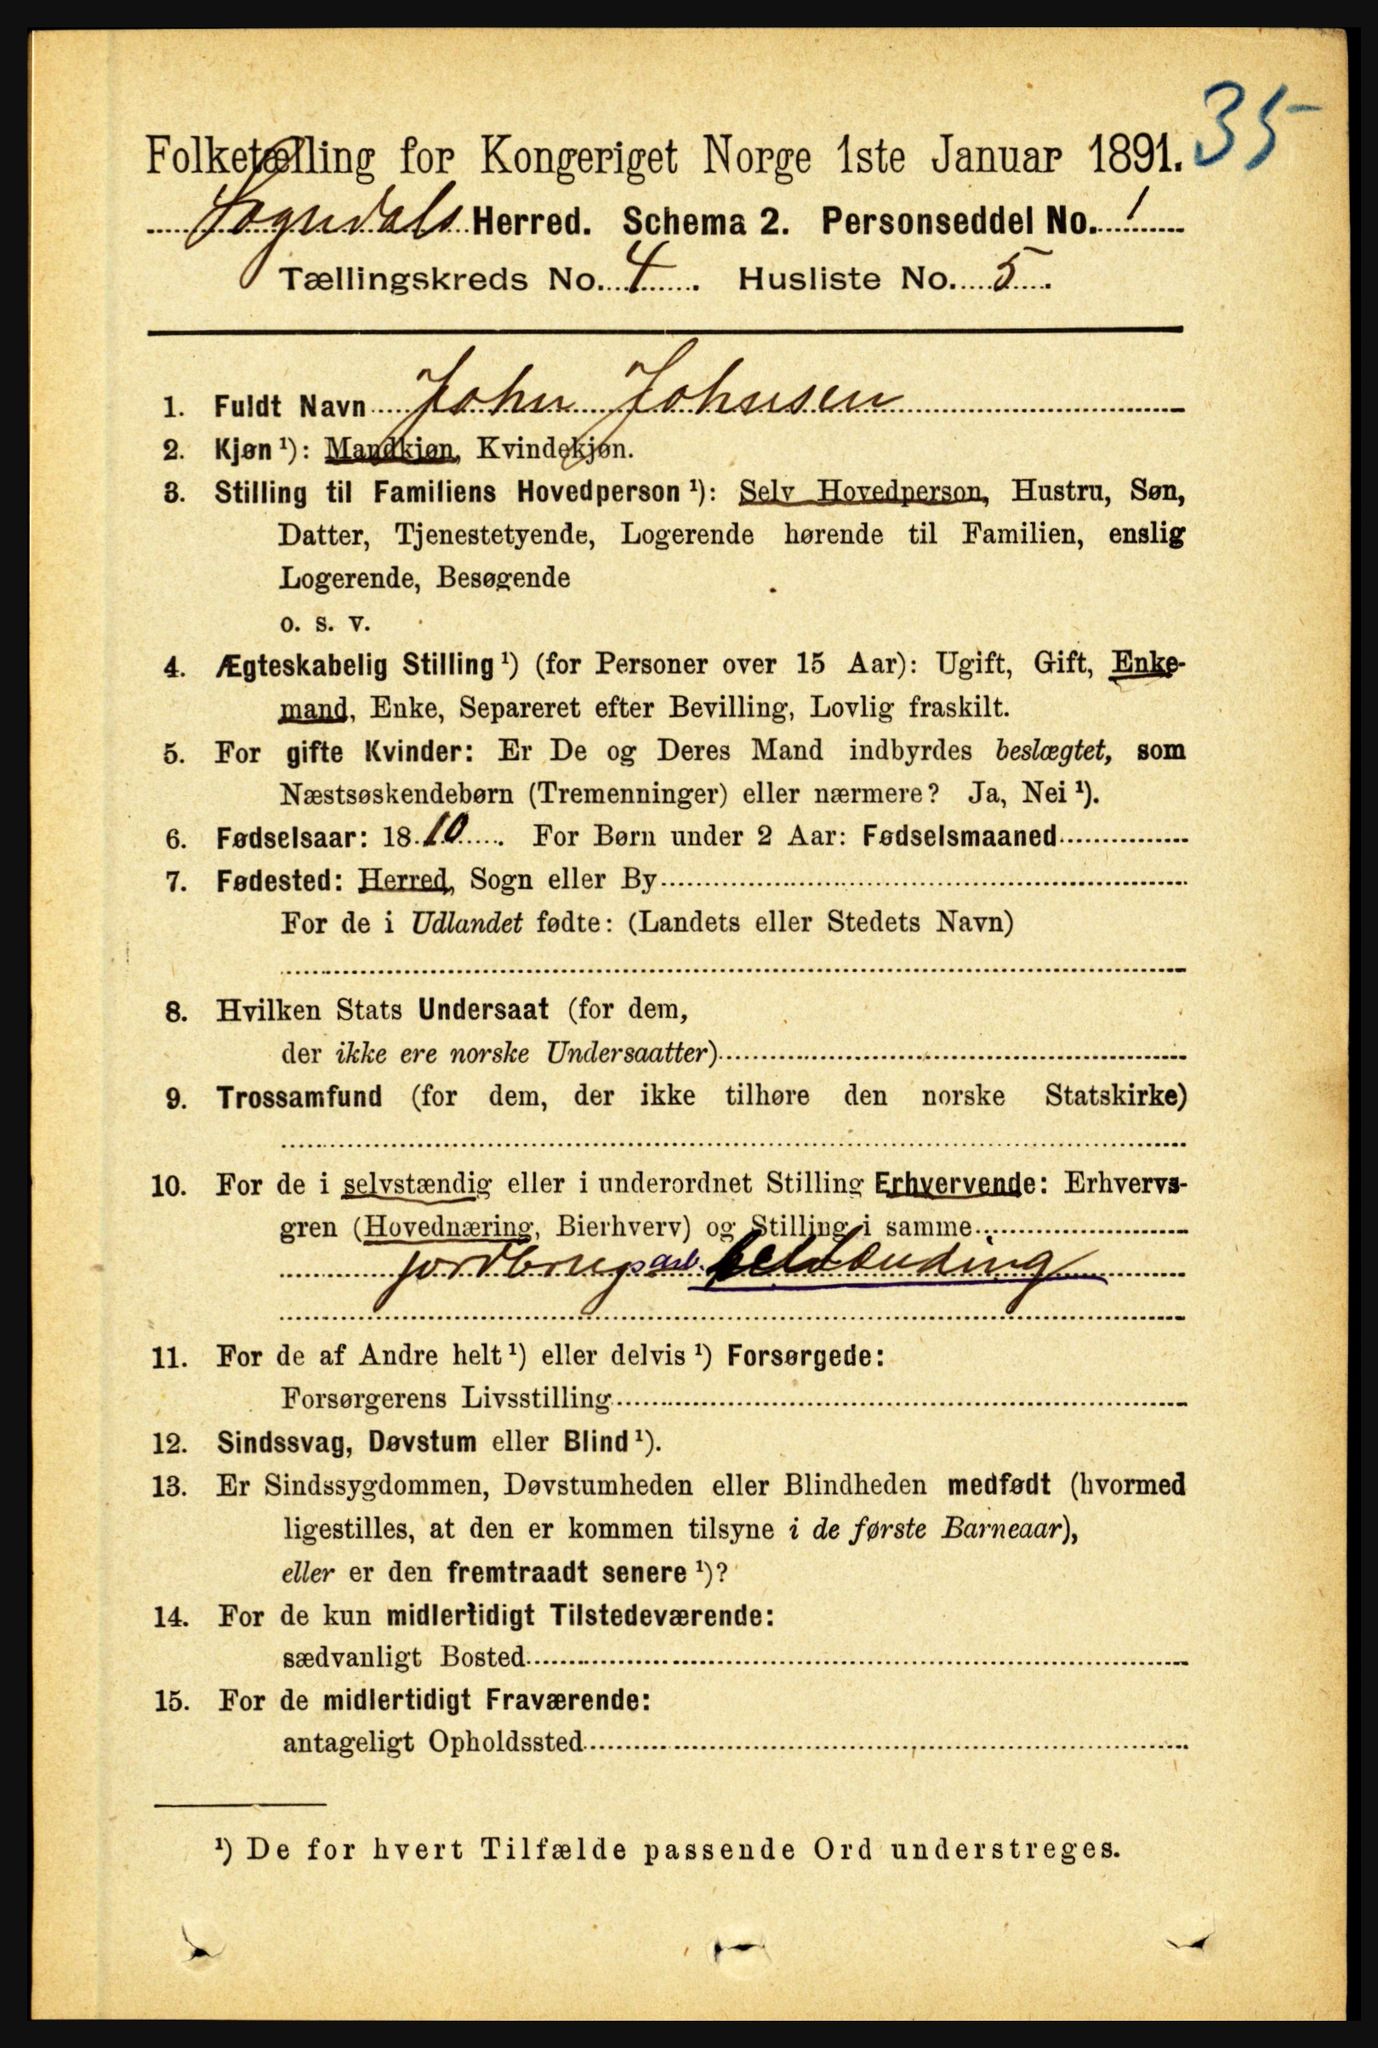 35
Folketælling for Kongeriget Norge 1ste Januar 1891.
Sogndals Herred. Schema 2. Personseddel No. 1
Tællingskreds No. 4. Husliste No. 5.
1. Fuldt Navn John Johnsen
2. Kjøn ¹): Mandkjøn, Kvindekjøn.
3. Stilling til Familiens Hovedperson ¹): Selv Hovedperson, Hustru, Søn,
Datter, Tjenestetyende, Logerende hørende til Familien, enslig
Logerende, Besøgende
o. s. v.
4. Ægteskabelig Stilling ¹) (for Personer over 15 Aar): Ugift, Gift, Enke-
mand, Enke, Separeret efter Bevilling, Lovlig fraskilt.
5. For gifte Kvinder: Er De og Deres Mand indbyrdes beslægtet, som
Næstsøskendebørn (Tremenninger) eller nærmere? Ja, Nei ¹).
6. Fødselsaar: 1810. For Børn under 2 Aar: Fødselsmaaned
7. Fødested: Herred, Sogn eller By
For de i Udlandet fødte: (Landets eller Stedets Navn)
8. Hvilken Stats Undersaat (for dem,
der ikke ere norske Undersaatter)
9. Trossamfund (for dem, der ikke tilhøre den norske Statskirke)
10. For de i selvstændig eller i underordnet Stilling Erhvervende: Erhvervs-
gren (Hovednæring, Bierhverv) og Stilling i samme
jordbrugsarb.
11. For de af Andre helt ¹) eller delvis ¹) Forsørgede:
Forsørgerens Livsstilling
12. Sindssvag, Døvstum eller Blind ¹).
13. Er Sindssygdommen, Døvstumheden eller Blindheden medfødt (hvormed
ligestilles, at den er kommen tilsyne i de første Barneaar),
eller er den fremtraadt senere ¹)?
14. For de kun midlertidigt Tilstedeværende:
sædvanligt Bosted
15. For de midlertidigt Fraværende:
antageligt Opholdssted
¹) De for hvert Tilfælde passende Ord understreges.